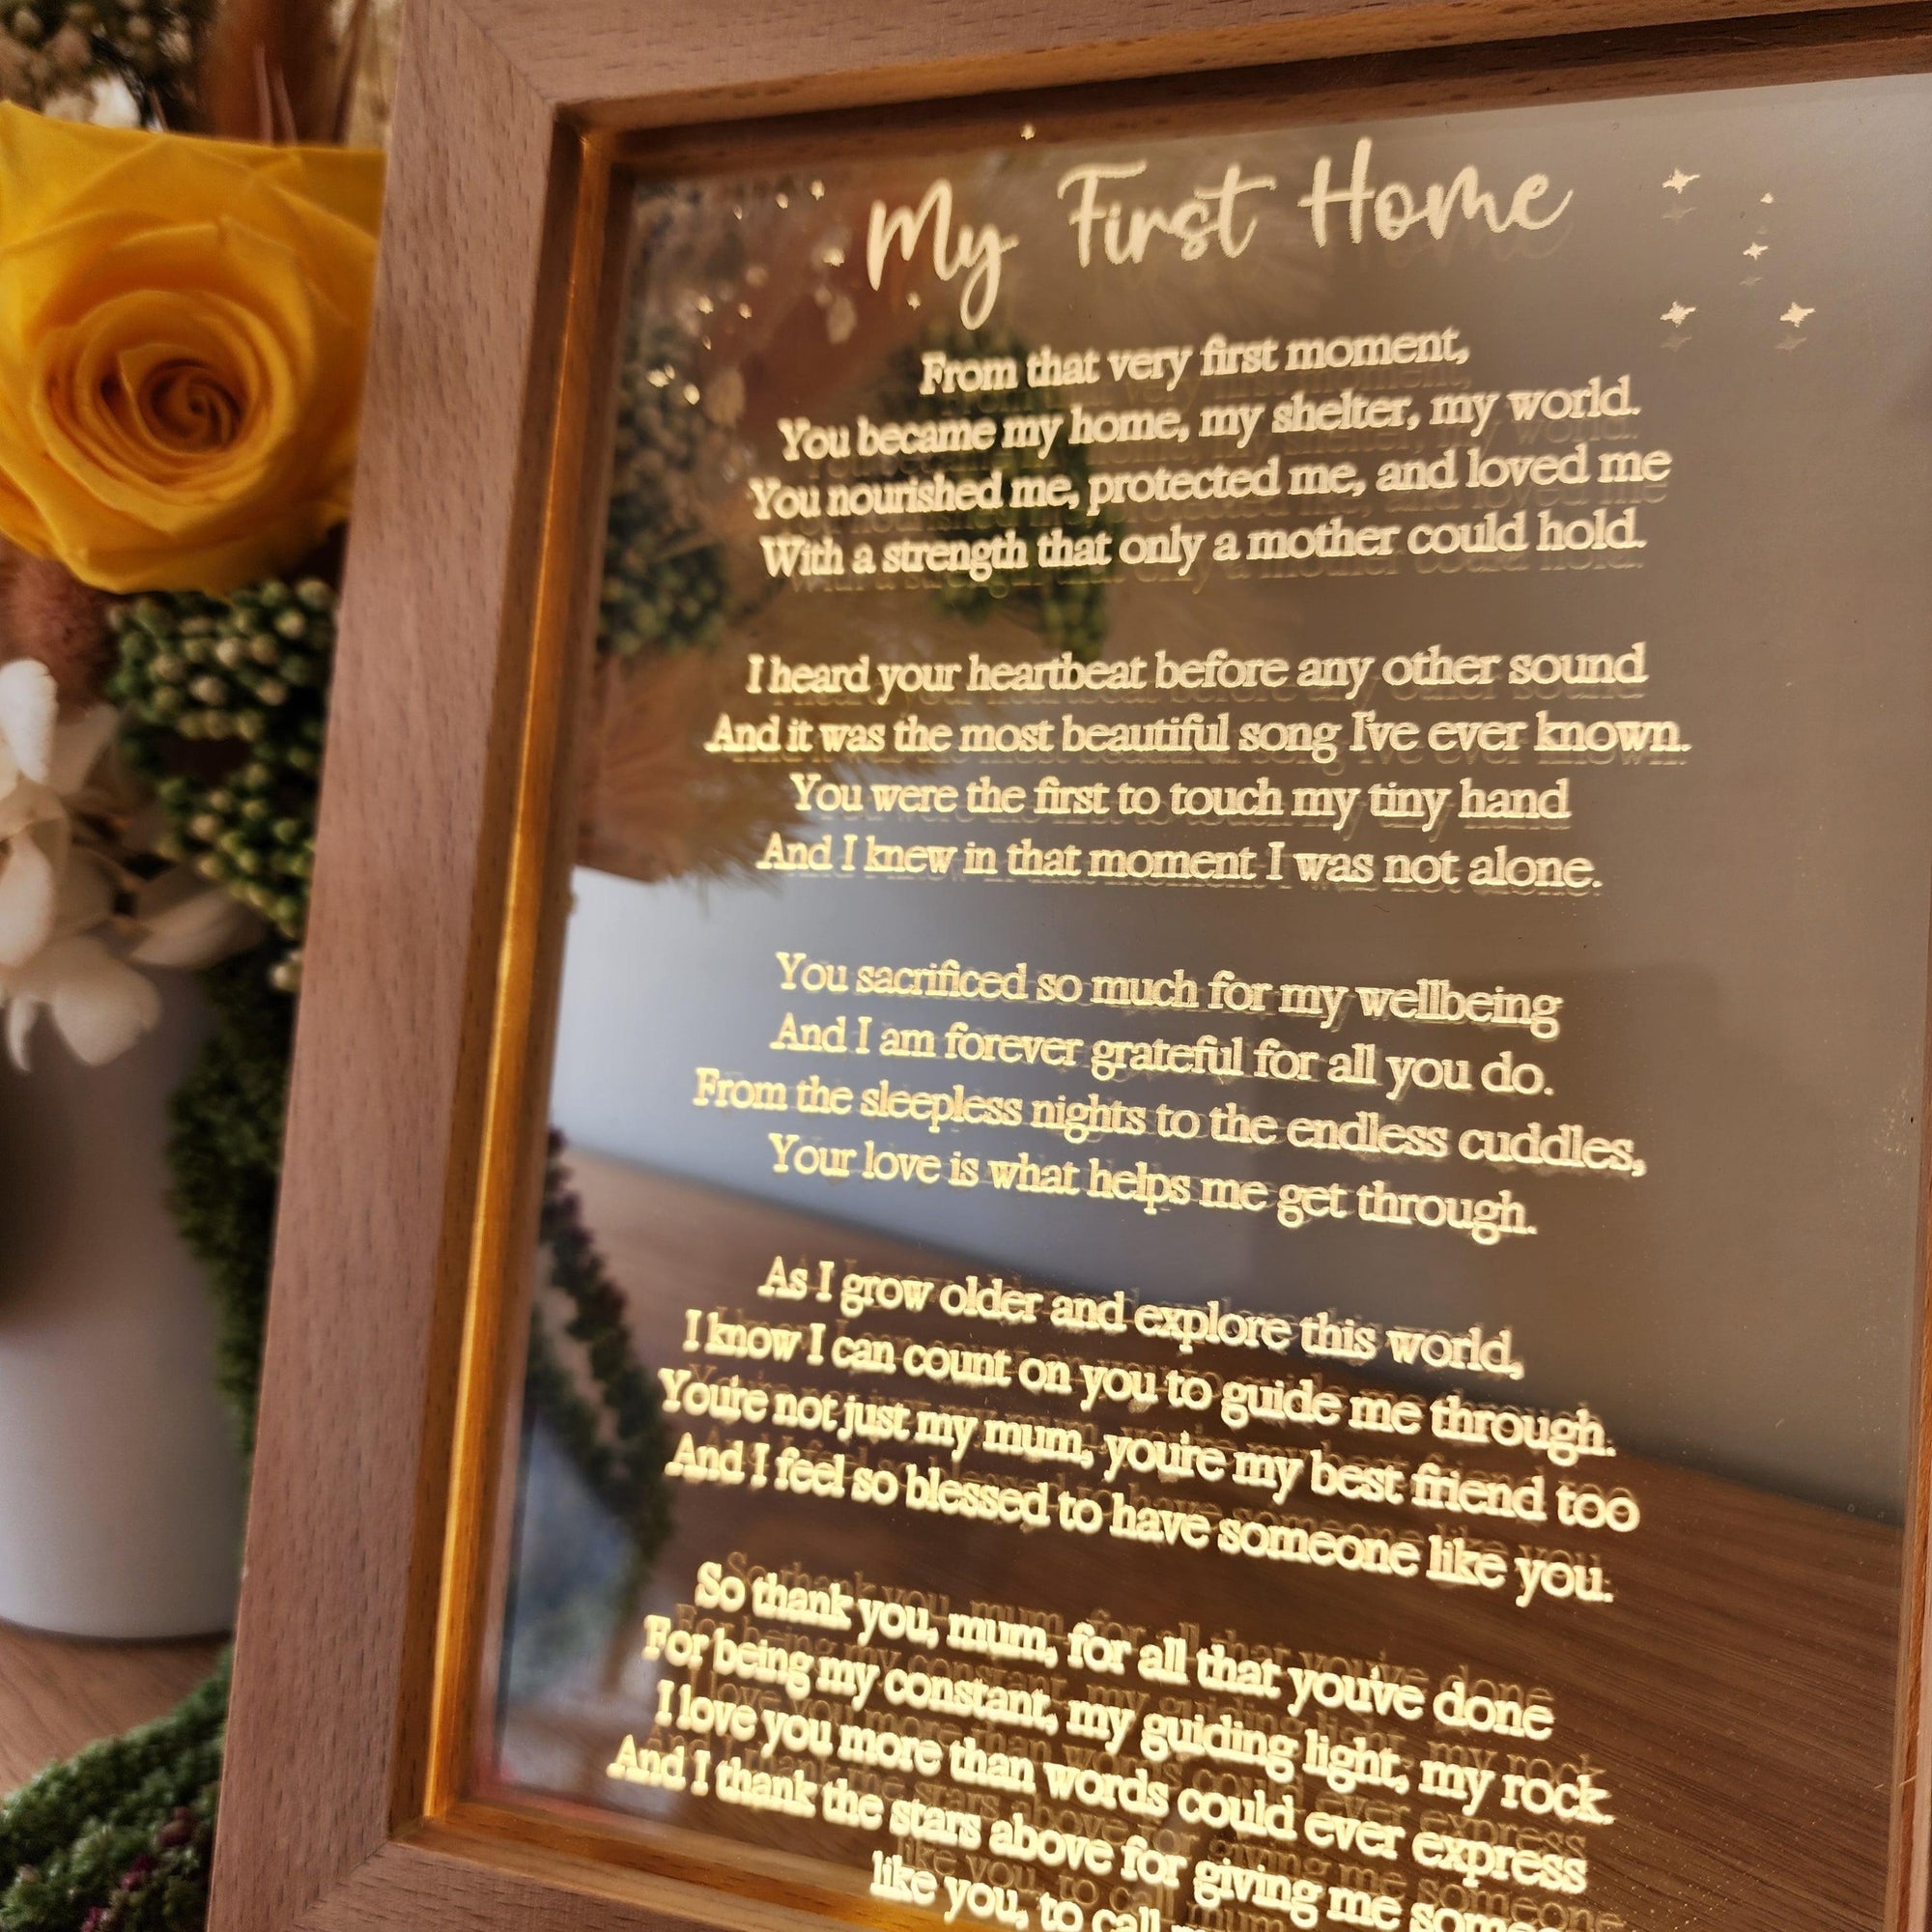 My First Home
From that very first moment,
You became my home, my shelter, my world.
You nourished me, protected me, and loved me
With a strength that only a mother could hold.
I heard your heartbeat before any other sound
And it was the most beautiful song I've ever known.
You were the first to touch my tiny hand
And I knew in that moment I was not alone.
You sacrificed so much for my wellbeing
And I am forever grateful for all you do.
From the sleepless nights to the endless cuddles,
Your love is what helps me get through.
As I grow older and explore this world,
I know I can count on you to guide me through.
You're not just my mum, you're my best friend too
And I feel so blessed to have someone like you.
So thank you, mum, for all that you've done
For being my constant, my guiding light, my rock.
I love you more than words could ever express
And I thank the stars above for giving me someone
like you, to call